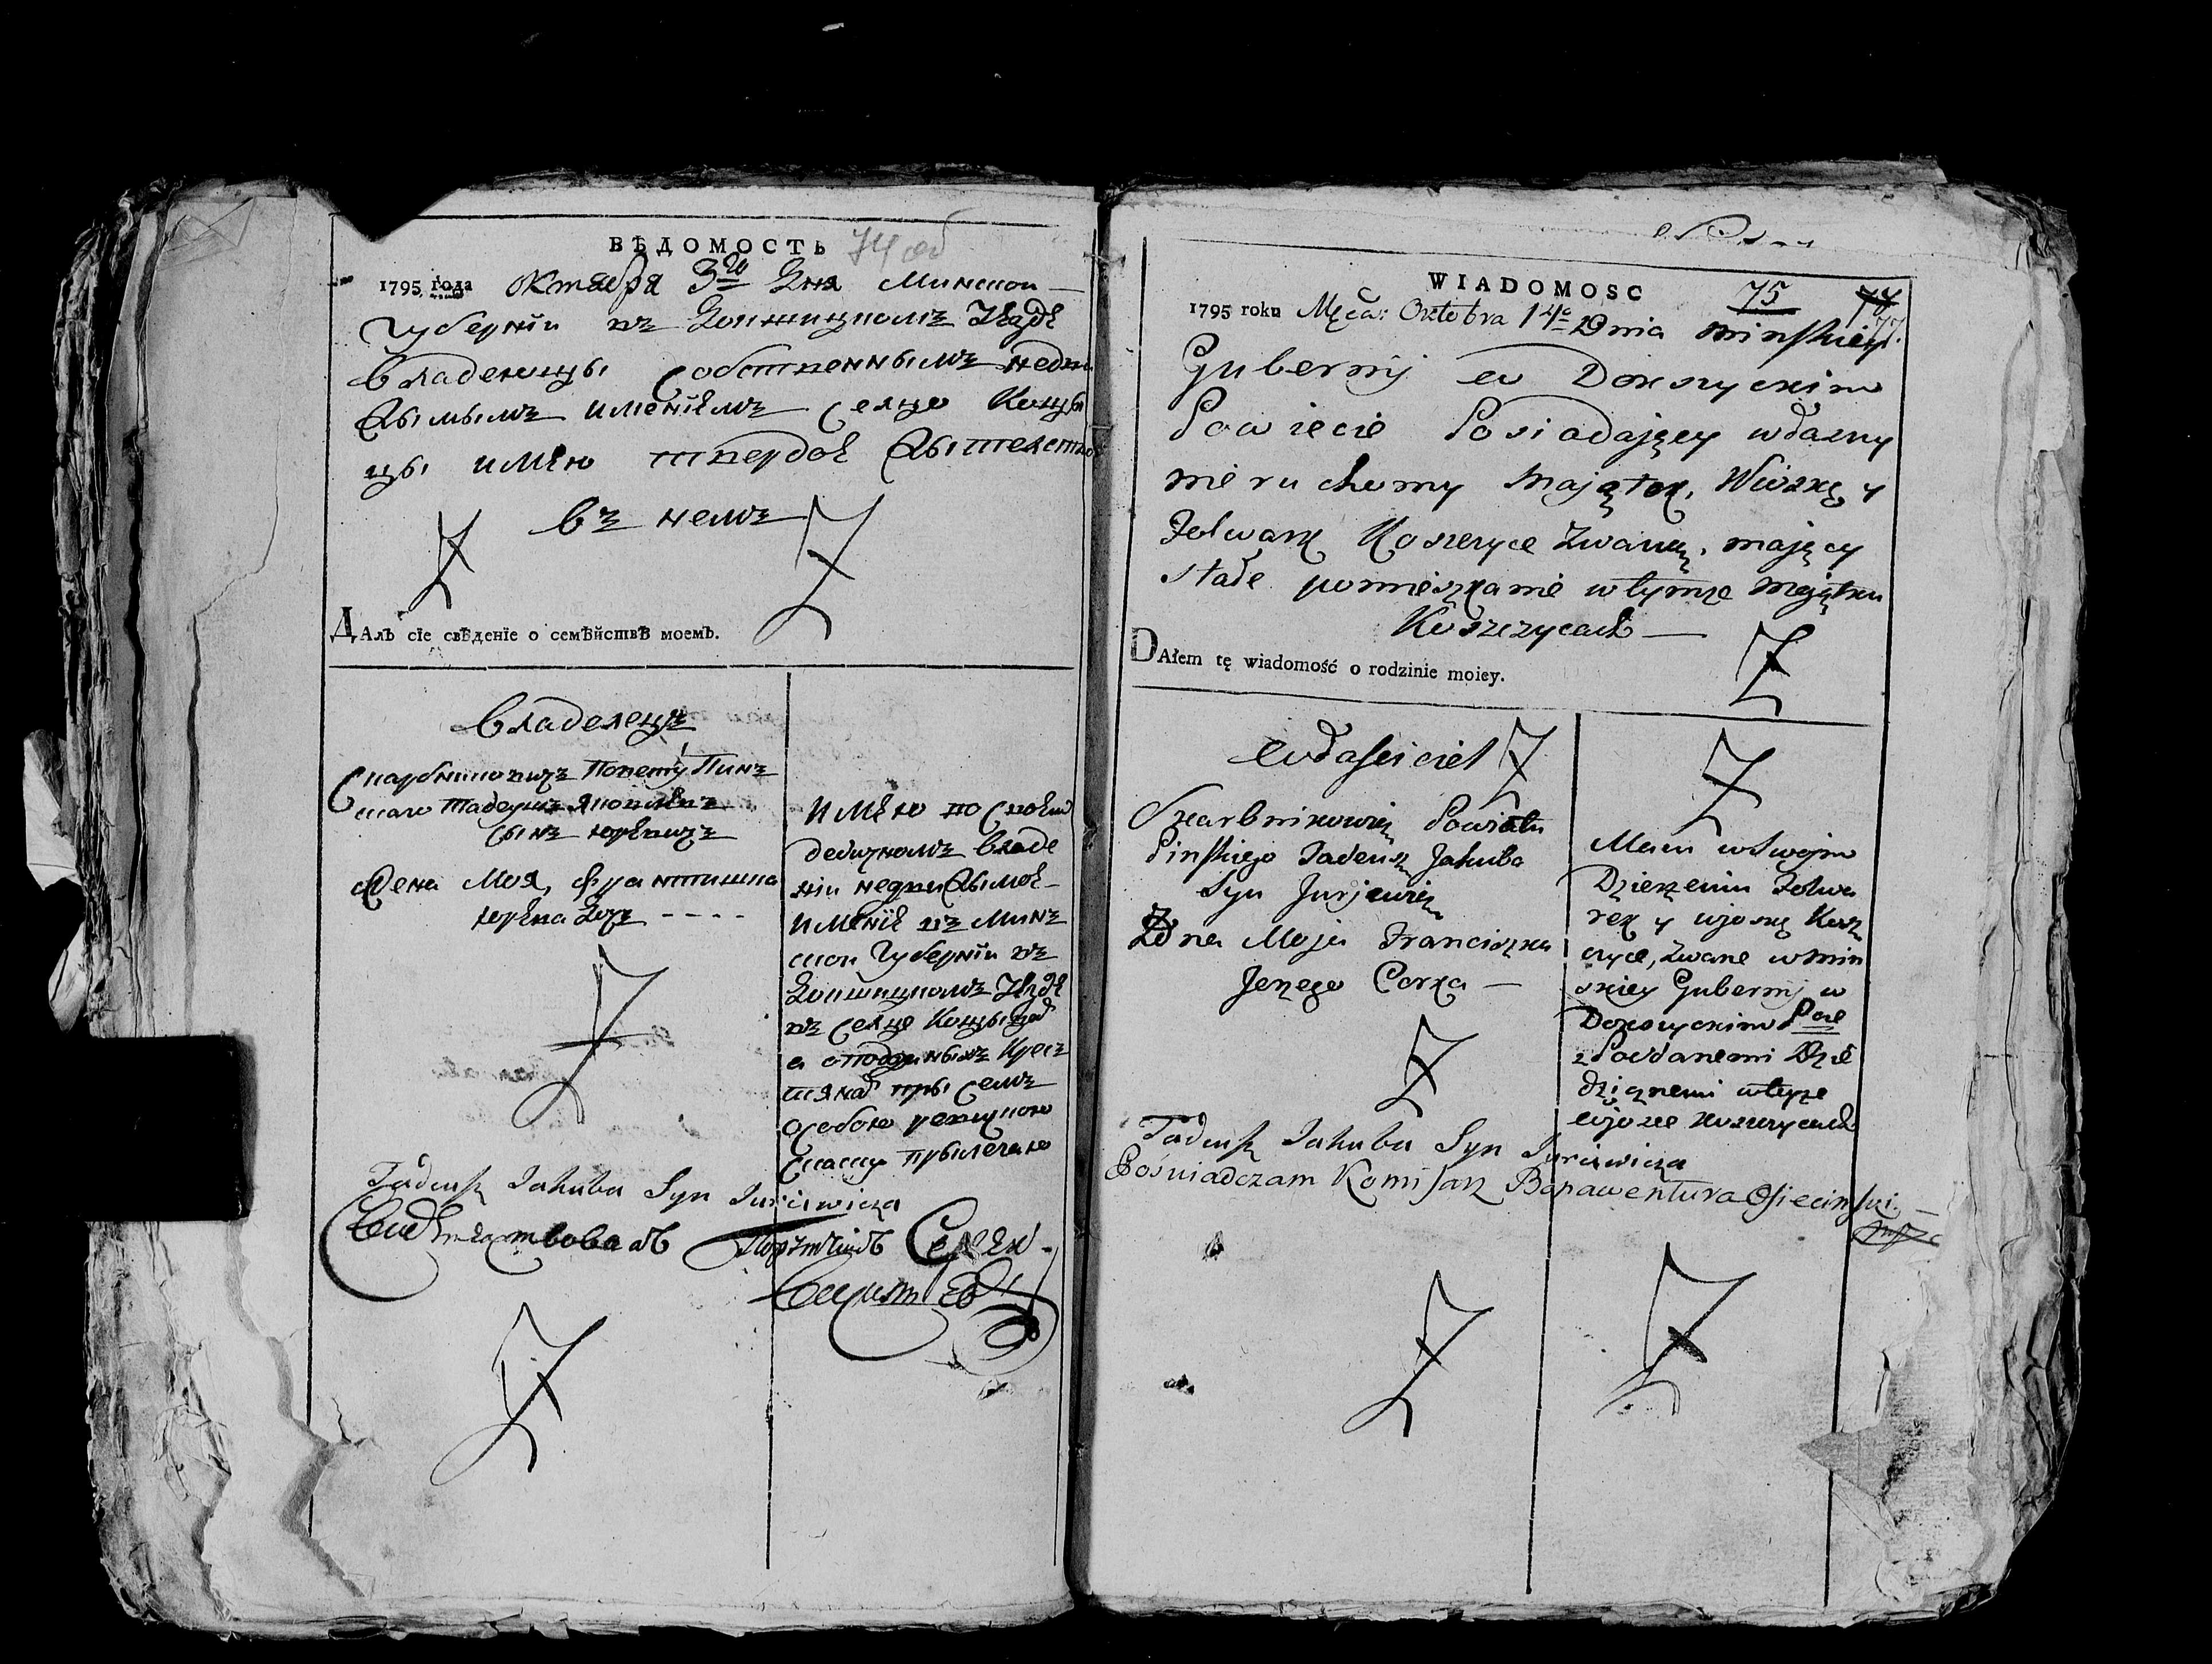 ВѢДОМОСТЬ 74 об
1795 года октября 3го дня Минской
Губернїи въ Докшицкомъ уѣзде
владеющы собственнымъ недви
жымымъ именїемъ сельцо
цы имѣю твердое жытелство
въ немъ
ДАлъ сїе свѣденїе о семѣйствѣ моемъ.
владелецъ
Скарбниковичъ Повету Пинъ
скаго Тадеушъ Яковлевъ
сынъ юревичъ
жена Моя, Францишка
юрьева дочь - - - -
имѣю по своем
дедичномъ владе
нїи недвижымое
именїе въ минъ
ской Губернїи въ
Докшицкомъ уѣзде
въ селце
о подданныхъ крес
тянах при семъ
особою ревискою
скаску прылагаю
Tadeusz Jakuba Syn Jurjewicza
Свидѣтелствовалъ Порутчикъ
WIADOMOSC 75
1795 roku Męca: Octobra 14o Dnia Minskiey
Gubernij w Dokszyckim
Powiecie Posiadający własny
nieruchomy Majątek, Wioskę y
Folwark Koszczyce zwane, mający
stałe pomieszkanie w tymże majątku
Koszczycach —
DAłem tę wiadomość o rodzinie moiey.
właściciel
Skarbnikowicz Powiatu
Pinskiego Tadeusz Jakuba
Syn Jurjewicz
Żona Moja Franciszka
Jerzego Corka —
Mam w Swojm
Dzierżeniu Folwa
rek y wjoskę Kosz
czyce, zwane w Min
skiey Gubernij w
Dokszyckim Pcie
z Poddanemi Dzie
dzicznemi w teyże
wjosce Koszczycach
Tadeusz Jakuba Syn Jurjewicza
Poświadczam Komisarz Bonawentura Osiecinski.